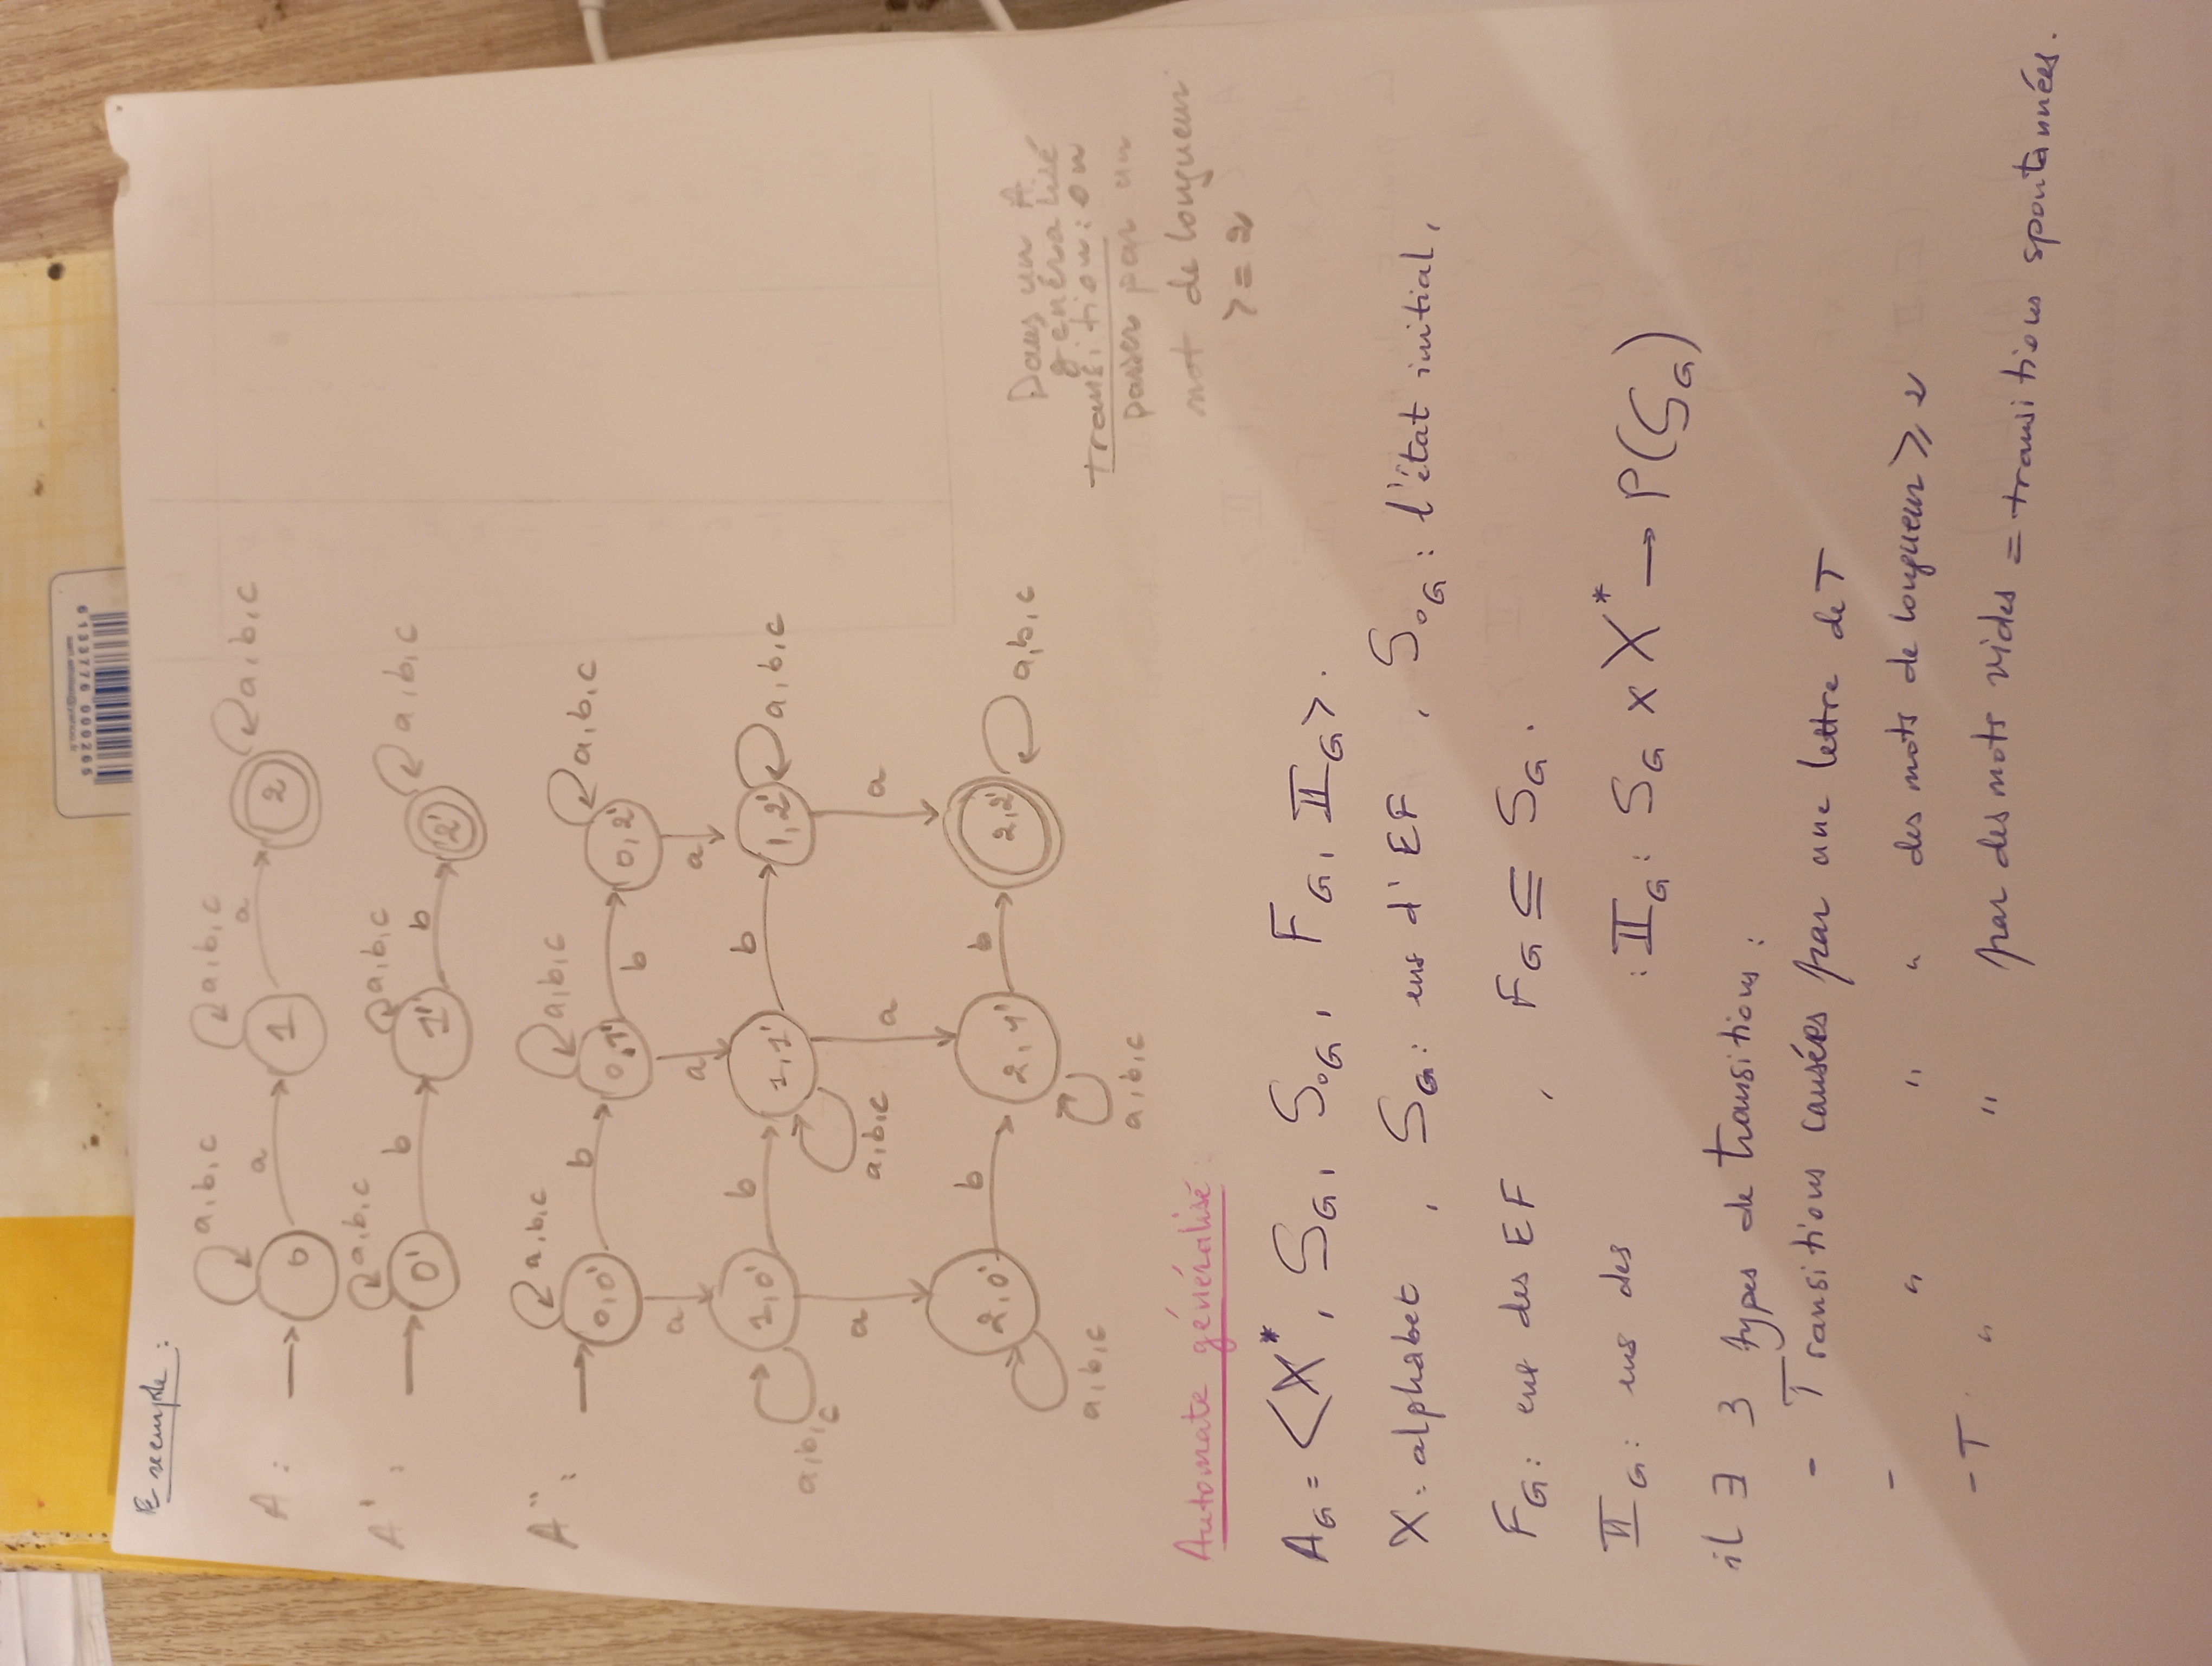 san.edistal@yahoo.fr
6133776 000265
Exemple :
a,b,c a,b,c a,b,c
A : 0 a 1 a 2
a,b,c a,b,c a,b,c
A' : 0' b 1' b 2'
a,b,c a,b,c a,b,c
A'' : 0,0' b 0,1' b 0,2'
a a a
1,0' b 1,1' b 1,2' a,b,c
a,b,c a,b,c
a a a
2,0' b 2,1' b 2,2' a,b,c
a,b,c a,b,c
Dans un A
généralisé
transition : on
passer par un
mot de longueur
>= 2
Automate généralisé :
A_G = <X*, S_G, S_0G, F_G, II_G>.
X : alphabet , S_G : ens d'EF , S_0G : l'état initial,
F_G : ens des EF , F_G ⊆ S_G.
II_G : ens des : II_G : S_G x X* → P(S_G)
il ∃ 3 types de transitions :
- Transitions causées par une lettre de T
- " " " des mots de longueur ⩾ 2
- T " " par des mots vides = transitions spontannées.